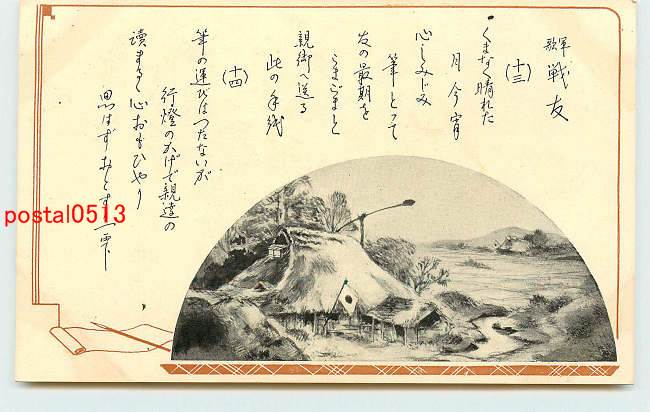 軍歌 戦友
(十三)
くまなく晴れた
月今宵
心しみじみ
筆とって
友の最期を
こまごまと
親御へ送る
此の手紙
(十四)
筆の運びはつたないが
行燈のかげで親達の
読まるゝ心おもひやり
思はずおとす一雫
postal0513